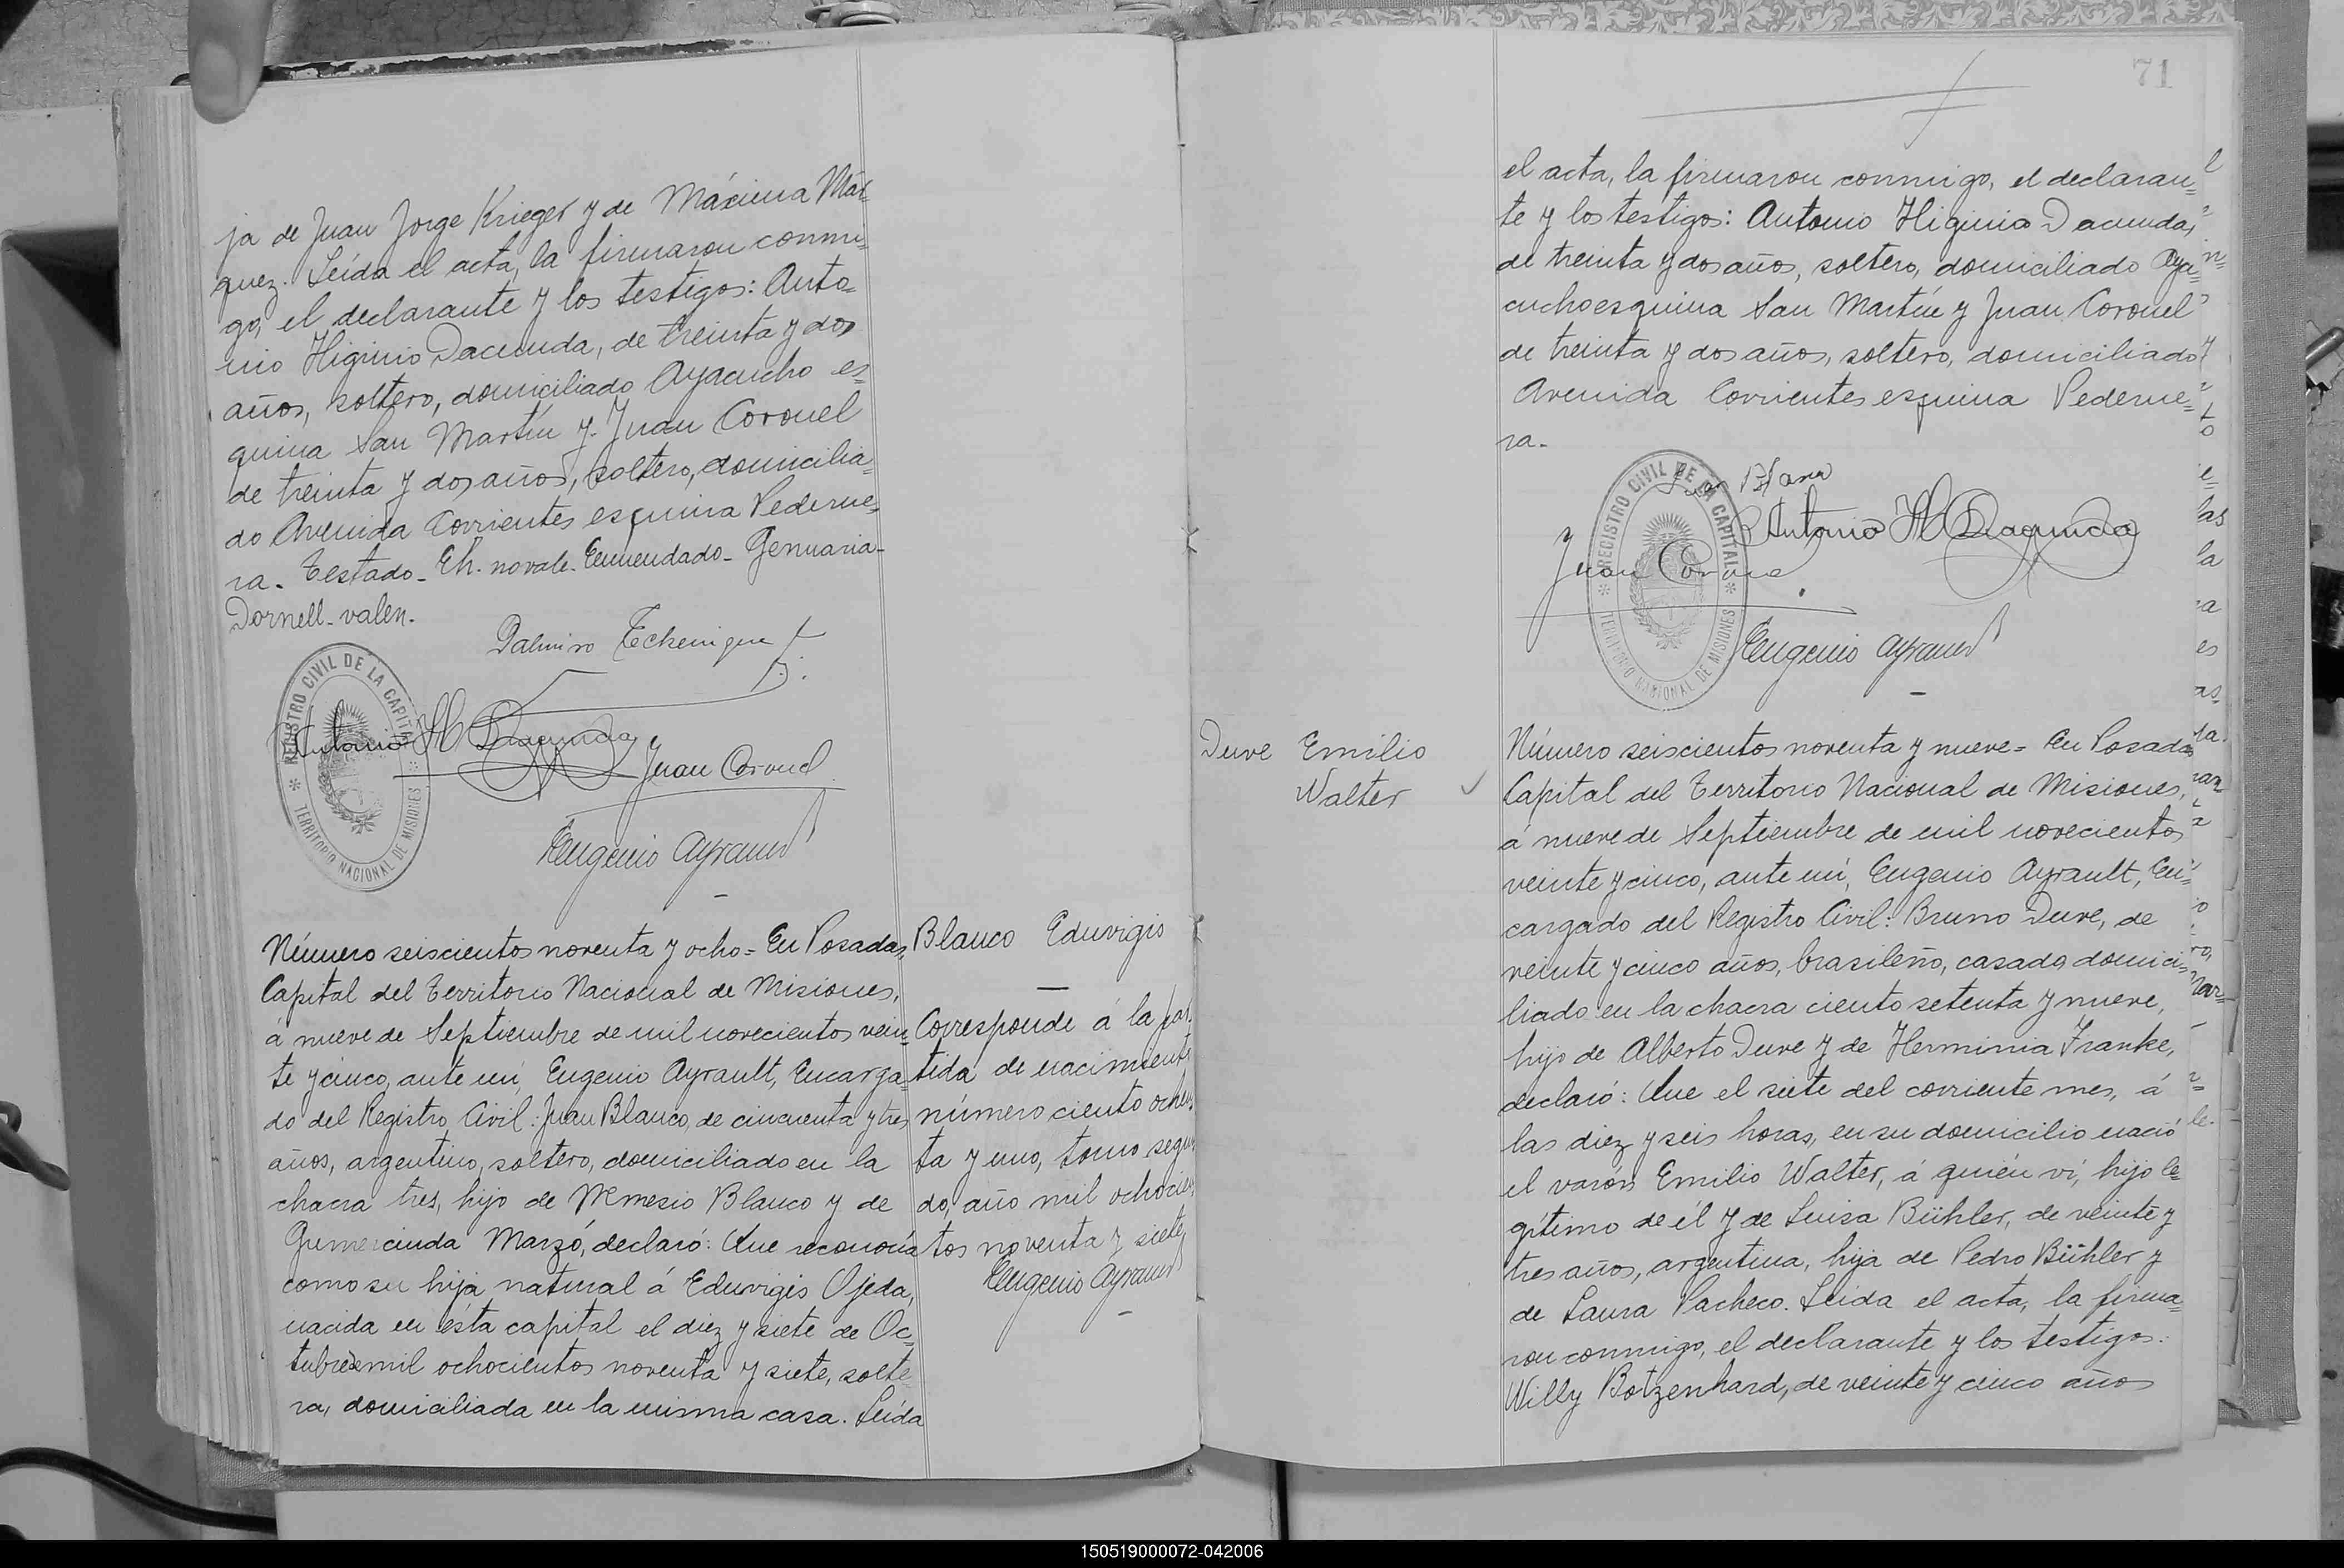 ja de Juan Jorge Krieger y de Máxima Már-
quez. Leída el acta, la firmaron conmi-
go, el declarante y los testigos: Anto-
nio Higinio Dacunda, de treinta y dos
años, soltero, domiciliado Ayacucho es-
quina San Martín y Juan Coronel
de treinta y dos años, soltero, domicilia-
do Avenida Corrientes esquina Pederne-
ra. Testado - Eh. no vale. Enmendado - Genuaria -
Dornell - valen.
Palmiro Echenique
REGISTRO CIVIL DE LA CAPITAL
TERRITORIO NACIONAL DE MISIONES
Antonio H Dacunda
Juan Coronel
Eugenio Ayrault
Número seiscientos noventa y ocho = En Posadas,
Capital del Territorio Nacional de Misiones,
á nueve de Septiembre de mil novecientos vein-
te y cinco, ante mí, Eugenio Ayrault, Encarga-
do del Registro Civil: Juan Blanco, de cincuenta y tres
años, argentino, soltero, domiciliado en la
chacra tres, hijo de Nemesio Blanco y de
Gumercinda Marzó, declaró: Que reconocía
como su hija natural á Eduvigis Ojeda,
nacida en ésta capital el diez y siete de Oc-
tubre de mil ochocientos noventa y siete, solte-
ra, domiciliada en la misma casa. Leída
Blanco Eduvigis
Corresponde á la par-
tida de nacimiento
número ciento ochen-
ta y uno, tomo segun-
do, año mil ochocien-
tos noventa y siete
Eugenio Ayrault
71
el acta, la firmaron conmigo, el declaran-
te y los testigos: Antonio Higinio Dacunda,
de treinta y dos años, soltero, domiciliado Aya-
cucho esquina San Martín y Juan Coronel
de treinta y dos años, soltero, domiciliado
Avenida Corrientes esquina Pederne-
ra.
REGISTRO CIVIL DE LA CAPITAL
TERRITORIO NACIONAL DE MISIONES
Antonio H Dacunda
Juan Coronel
Eugenio Ayrault
Duve Emilio
Walter
Número seiscientos noventa y nueve = En Posadas
Capital del Territorio Nacional de Misiones,
á nueve de Septiembre de mil novecientos
veinte y cinco, ante mí, Eugenio Ayrault, En-
cargado del Registro Civil: Bruno Duve, de
veinte y cinco años, brasileño, casado domici-
liado en la chacra ciento setenta y nueve,
hijo de Alberto Duve y de Herminia Franke,
declaró: Que el siete del corriente mes, á
las diez y seis horas, en su domicilio nació
el varón Emilio Walter, á quién ví, hijo le-
gítimo de él y de Luisa Bühler, de veinte y
tres años, argentina, hija de Pedro Bühler y
de Laura Pacheco. Leída el acta, la firma-
ron conmigo, el declarante y los testigos:
Willy Botzenhard, de veinte y cinco años
150519000072-042006